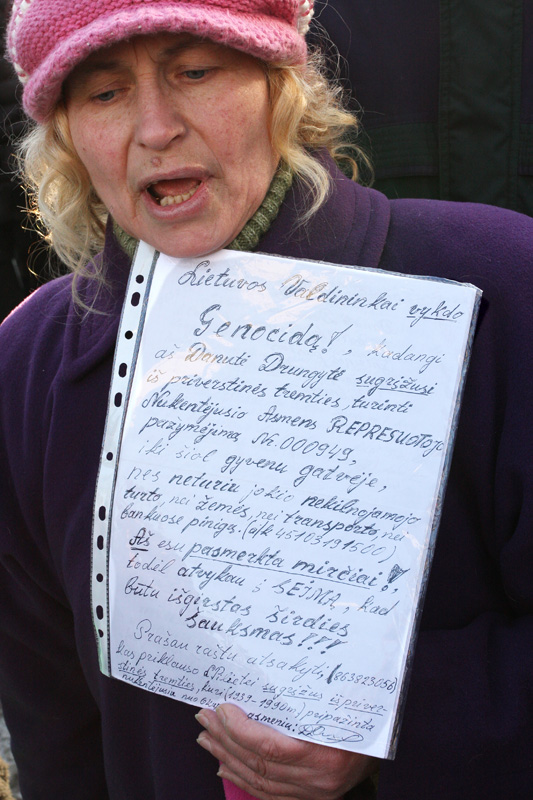 Lietuvos Valdininkai vykdo
Genocidą!, kadangi
aš Danutė Drungytė sugrįžusi
iš priverstinės tremties, turinti
Nukentėjusio Asmens REPRESUOTOJO
pažymėjimą Nr. 000949,
iki šiol gyvenu gatvėje,
nes neturiu jokio nekilnojamojo
turto, nei žemės, nei transporto, nei
bankuose pinigų. (a/k 45103191500)
Aš esu pasmerkta mirčiai!,
todėl atvykau į SEIMĄ, kad
būtų išgirstas širdies
šauksmas!!!
Prašau raštu atsakyti,
kas priklauso sugrįžus iš priver-
stinės tremties, kuri (1939-1990m) pripažinta
nukentėjusia nuo
asmeniu: